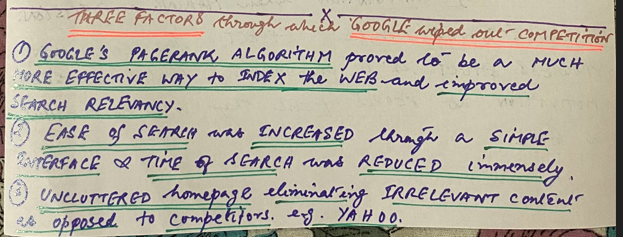 THREE FACTORS through which GOOGLE wiped out COMPETITION
① GOOGLE'S PAGERANK ALGORITHM proved to be a MUCH
MORE EFFECTIVE WAY to INDEX the WEB and improved
SEARCH RELEVANCY.
② EASE of SEARCH was INCREASED through a SIMPLE
INTERFACE & TIME of SEARCH was REDUCED immensely.
③ UNCLUTTERED homepage eliminating IRRELEVANT content
as opposed to competitors. e.g. YAHOO.